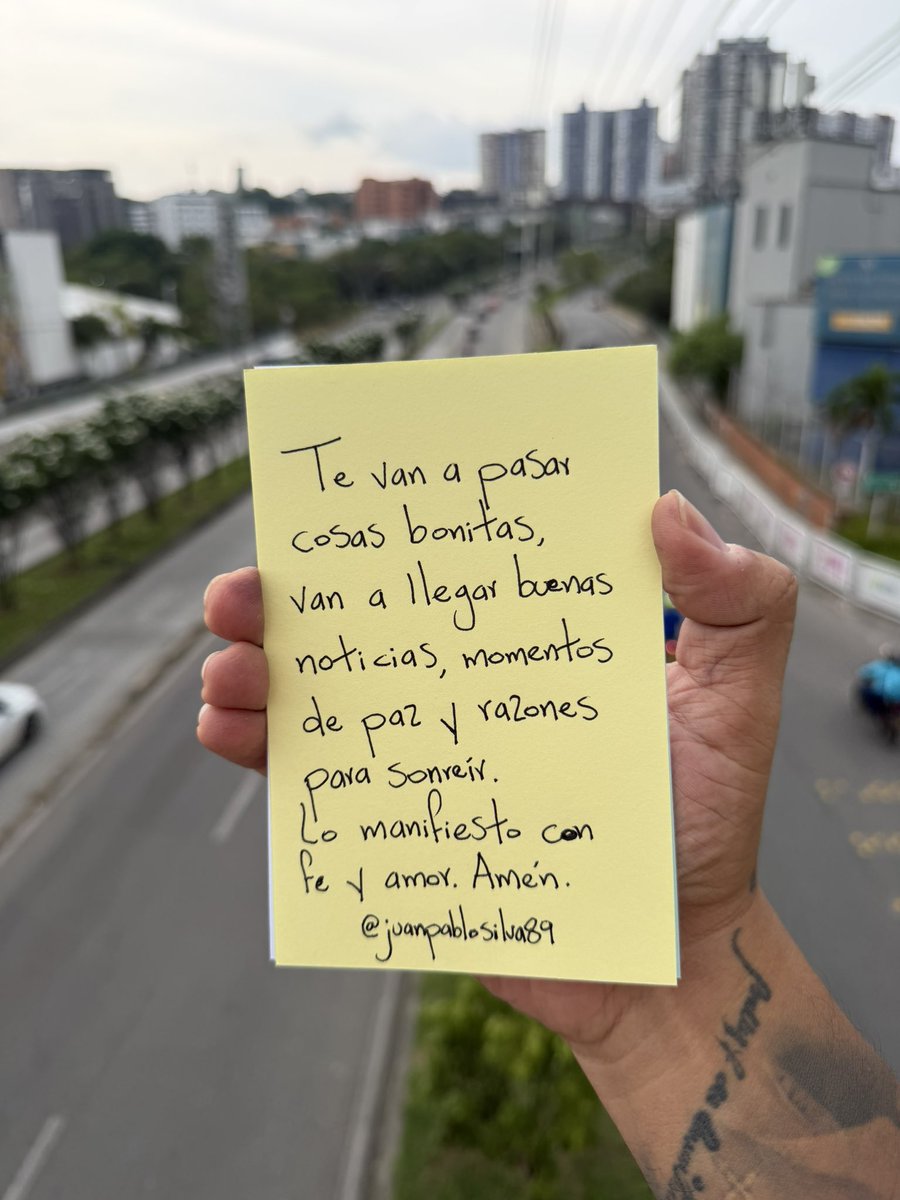 Te van a pasar
cosas bonitas,
van a llegar buenas
noticias, momentos
de paz y razones
para sonreír.
Lo manifiesto con
fe y amor. Amén.
@juanpablosilva89